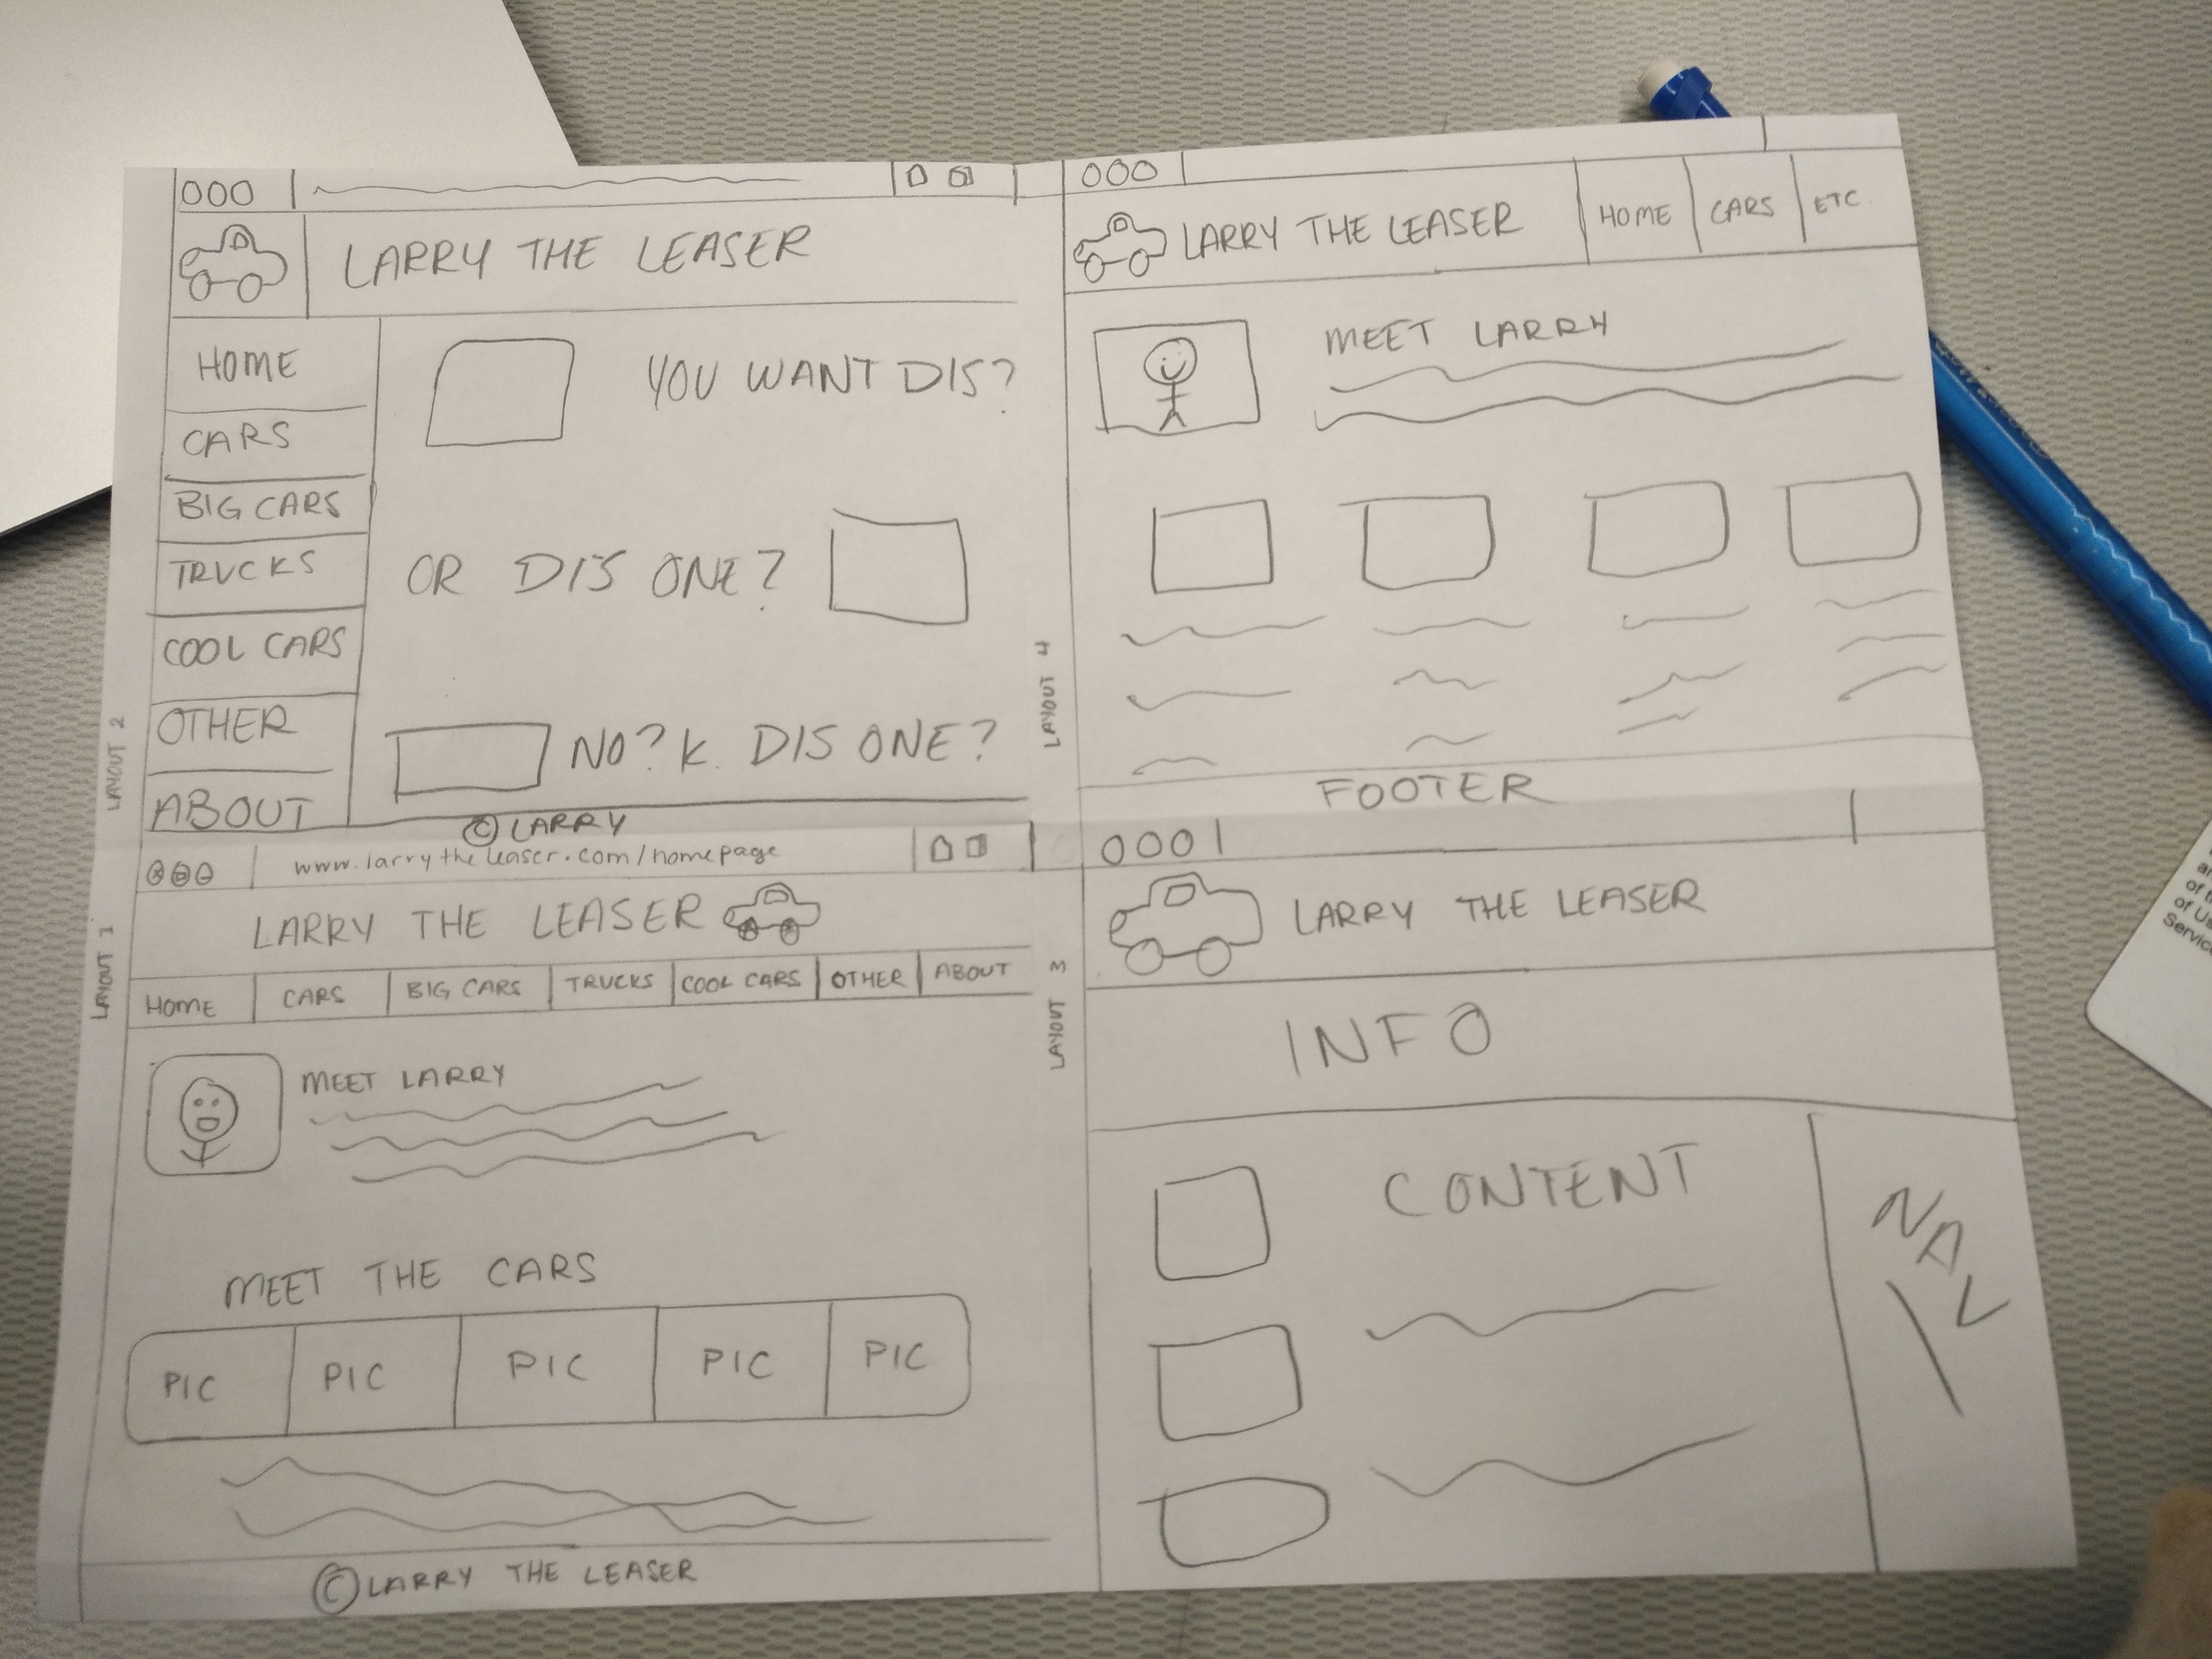 LARRY THE LEASER
HOME
CARS
BIG CARS
TRUCKS
COOL CARS
OTHER
ABOUT
YOU WANT DIS?
OR DIS ONE?
NO? K. DIS ONE?
© LARRY
LAYOUT 2
LARRY THE LEASER
HOME
CARS
ETC.
MEET LARRY
FOOTER
LAYOUT 4
www.larrytheleaser.com/homepage
LARRY THE LEASER
HOME CARS BIG CARS TRUCKS COOL CARS OTHER ABOUT
MEET LARRY
MEET THE CARS
PIC PIC PIC PIC PIC
© LARRY THE LEASER
LAYOUT 1
LARRY THE LEASER
INFO
CONTENT
NAV
LAYOUT 3
of Us
Servic